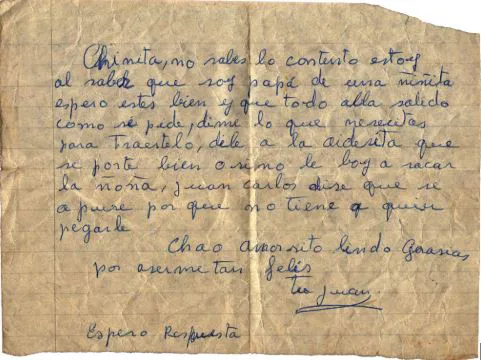 Chinita, no sabes lo contento estoy
al saber que soy papá de una niñita
espero estes bien y que todo alla salido
como se pide, dime lo que nesecitas
para Traertelo, dile a la aidesita que
se porte bien o sino le boy a sacar
la ñoña, Juan Carlos dise que se
apure por que no tiene a quien
pegarle
Chao amorsito lindo Grasias
por aserme tan felis
tu Juan
Espero Respuesta